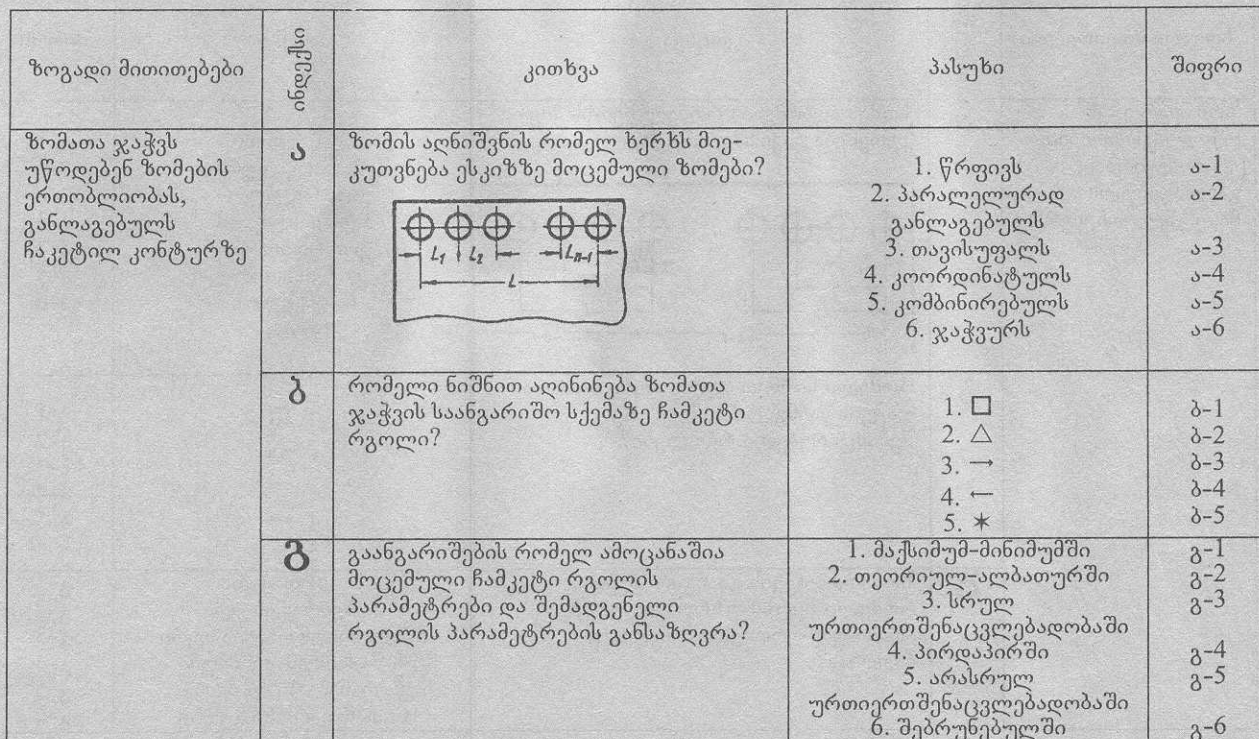 ზოგადი მითითებები
ინდექსი
კითხვა
პასუხი
შიფრი
ზომათა ჯაჭვს
უწოდებენ ზომების
ერთობლიობას,
განლაგებულს
ჩაკეტილ კონტურზე
ა
ზომის აღნიშვნის რომელ ხერხს მიე-
კუთვნება ესკიზზე მოცემული ზომები?
L₁ L₂ Lₙ₋₁
L
1. წრფივს ა-1
2. პარალელურად ა-2
განლაგებულს
3. თავისუფალს ა-3
4. კოორდინატულს ა-4
5. კომბინირებულს ა-5
6. ჯაჭვურს ა-6
ბ
რომელი ნიშნით აღინინება ზომათა
ჯაჭვის საანგარიშო სქემაზე ჩამკეტი
რგოლი?
1. □ ბ-1
2. △ ბ-2
3. → ბ-3
4. ← ბ-4
5. ✶ ბ-5
გ
გაანგარიშების რომელ ამოცანაშია
მოცემული ჩამკეტი რგოლის
პარამეტრები და შემადგენელი
რგოლის პარამეტრების განსაზღვრა?
1. მაქსიმუმ-მინიმუმში გ-1
2. თეორიულ-ალბათურში გ-2
3. სრულ გ-3
ურთიერთშენაცვლებადობაში
4. პირდაპირში გ-4
5. არასრულ გ-5
ურთიერთშენაცვლებადობაში
6. შებრუნებულში გ-6